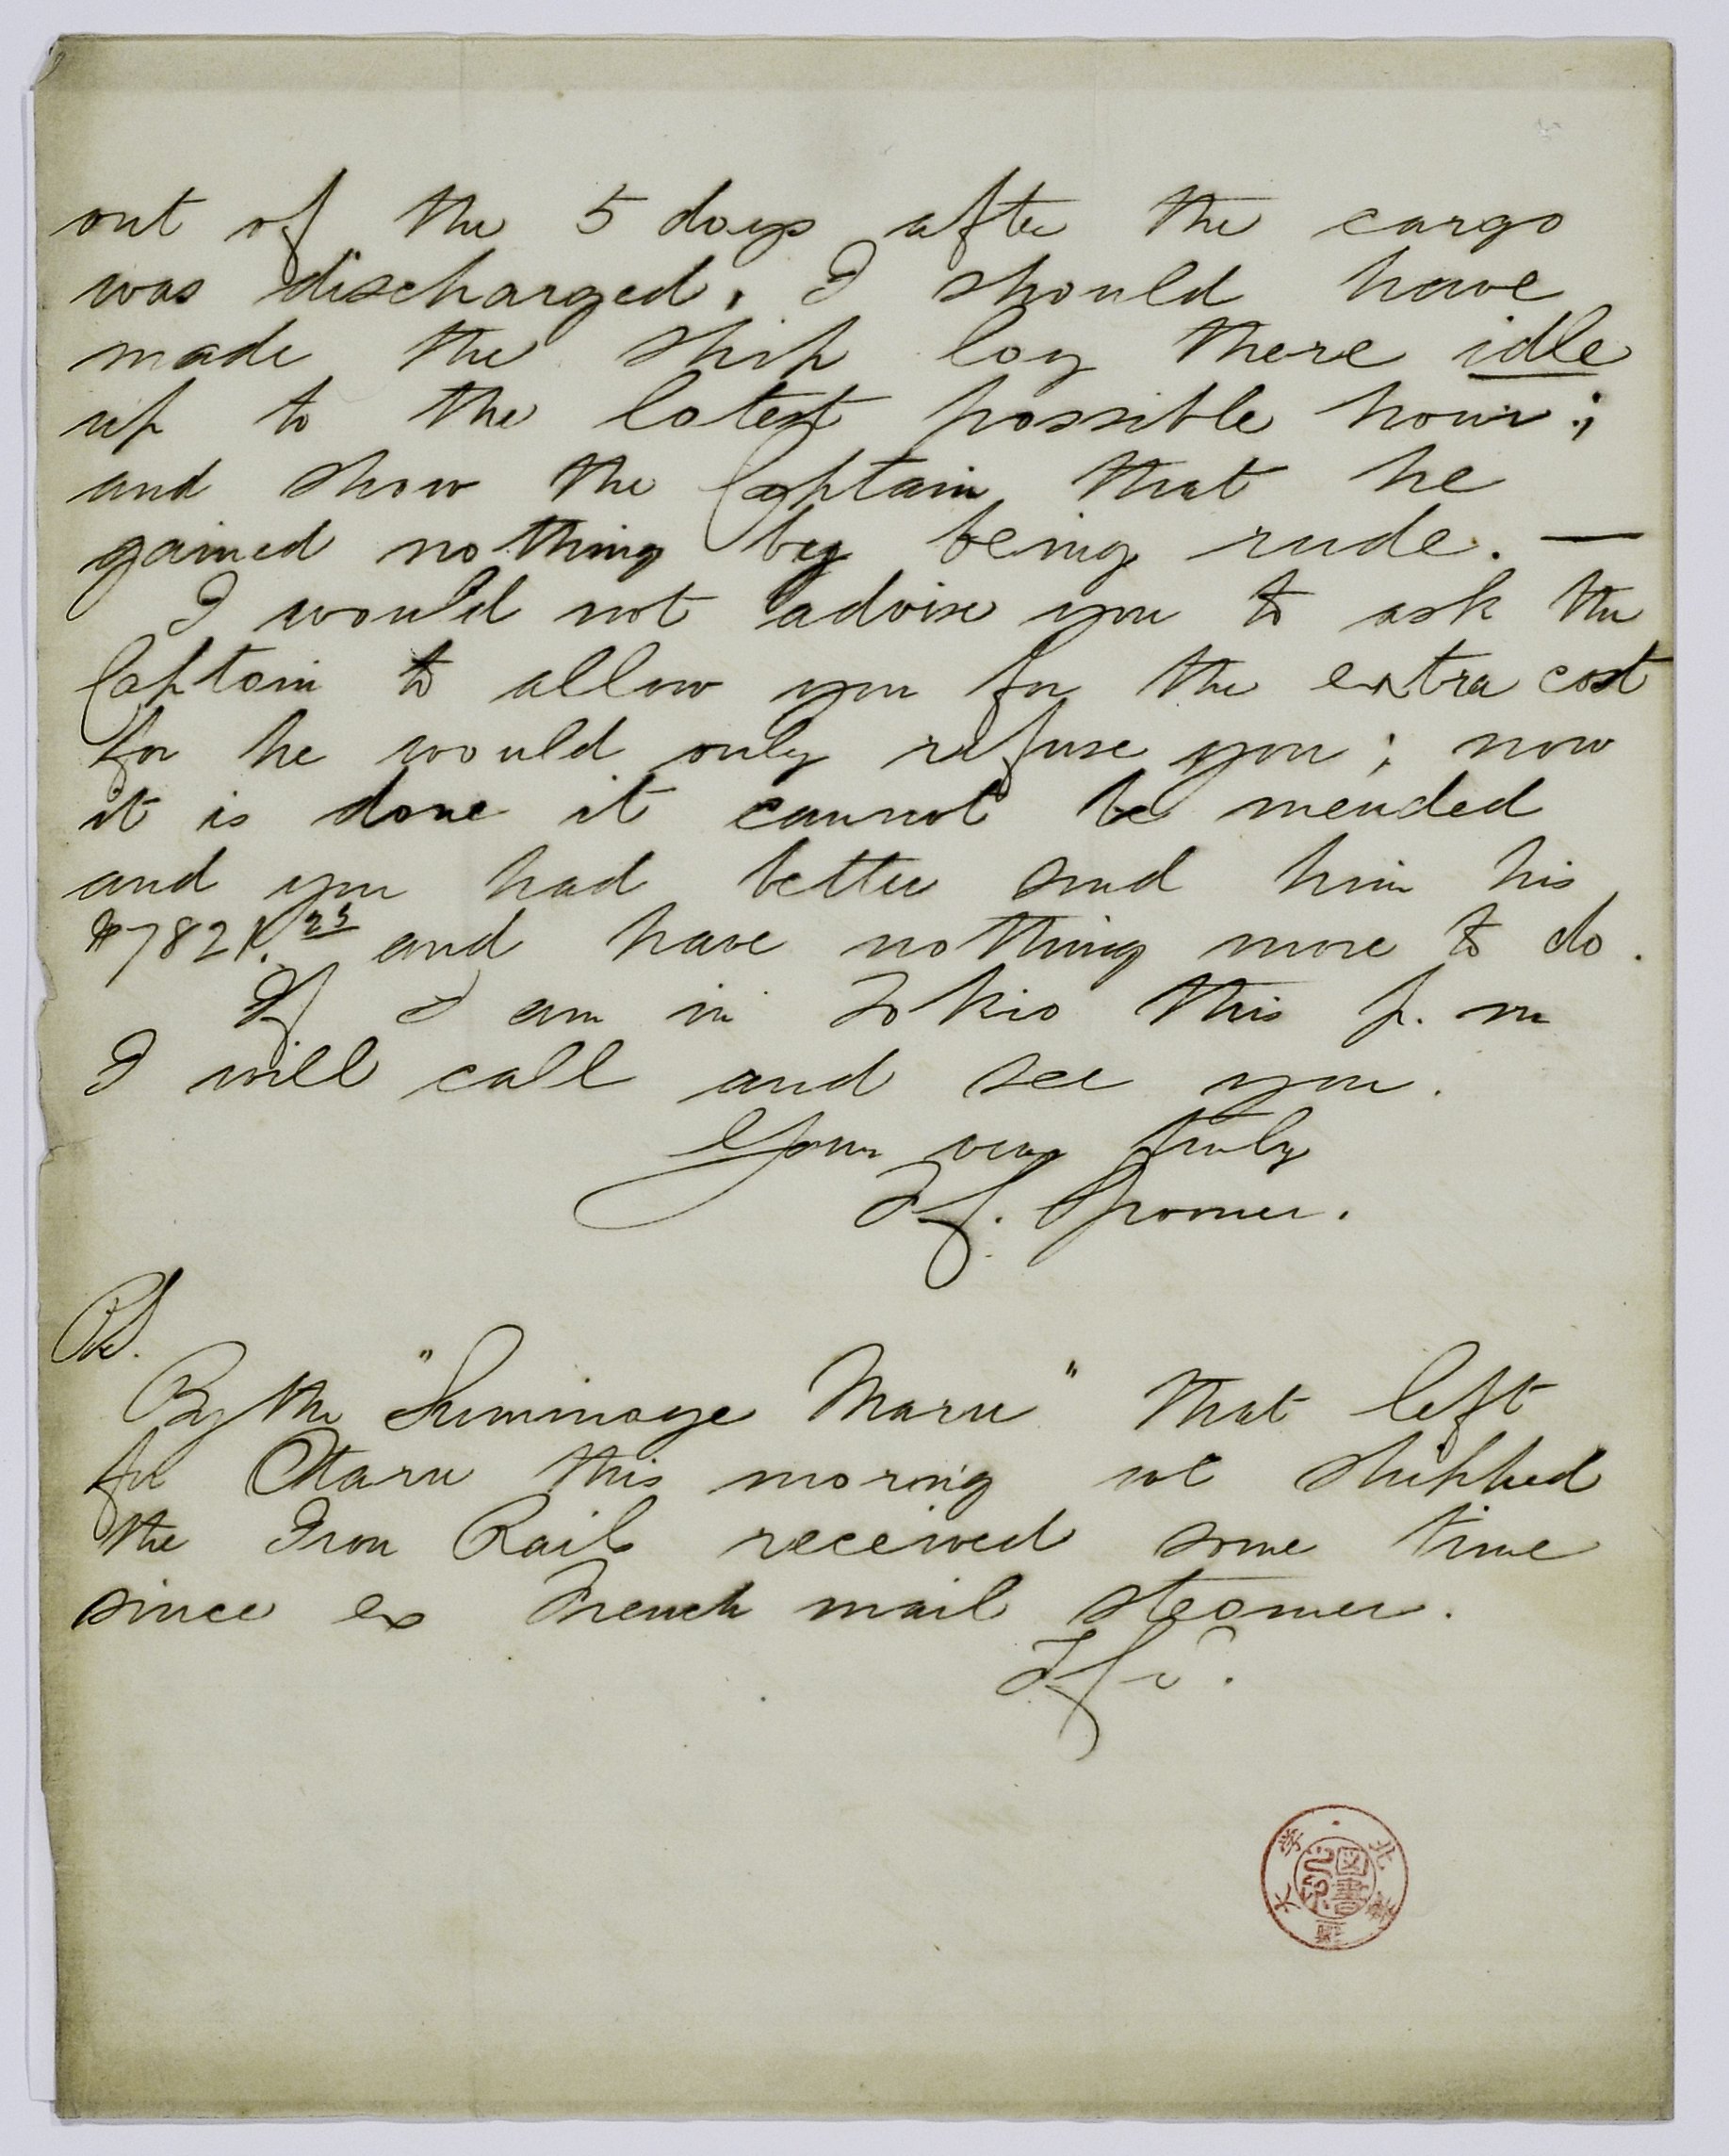 out of the 5 days after the cargo
was discharged, I should have
made the ship lay there idle
up to the latest possible hour;
and show the Captain that he
gained nothing by being rude. —
I would not advise you to ask the
Captain to allow you for the extra cost
for he would only refuse you; now
it is done it cannot be mended
and you had better send him his
and have nothing more to do.
If I am in Tokio this p. m
I will call and see you.
Yours very truly
PS.
By the " Maru" that left
for Otaru this morning we shipped
the Iron Rails received some time
since ex French mail steamer.
北海道大学
図書之印